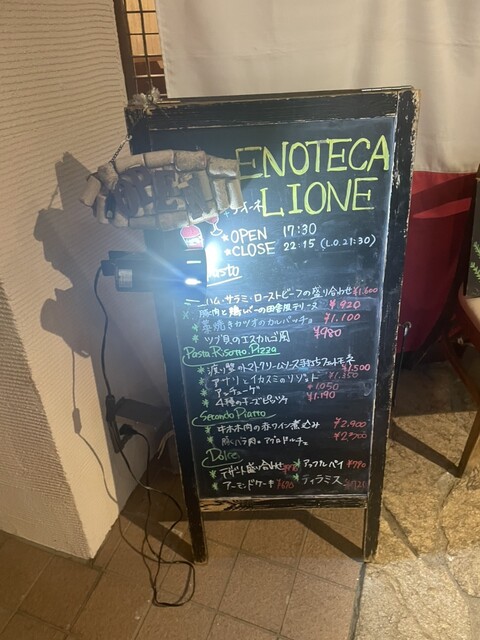 ENOTECA
LIONE
OPEN 17:30
CLOSE 22:15 (L.O.21:30)
ハム・サラミ・ローストビーフの盛り合わせ ¥1,600
豚肉と鶏レバーの田舎風テリーヌ ¥920
藁焼きカツオのカルパッチョ ¥1,100
ツブ貝のエスカルゴ風 ¥980
Pasta. Risotto. Pizza
渡り蟹のトマトクリームソース手打ちフェットチーネ ¥1,500
アサリとイカスミのリゾット ¥1,350
¥1,050
4種のチーズピッツァ ¥1,190
Secondo Piatto
牛ホホ肉の赤ワイン煮込み ¥2,900
豚バラ肉の
Dolce
デザート盛り合わせ アップルパイ ¥790
アーモンドケーキ ¥670 ティラミス